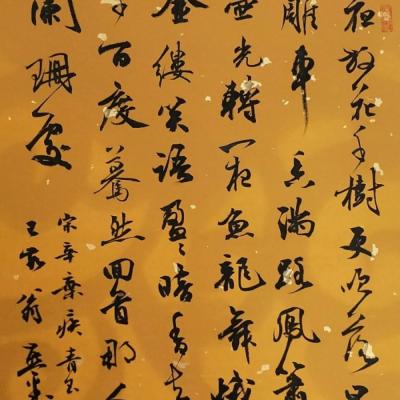 夜放花千樹更吹落星
雕車香滿路鳳簫
壺光轉一夜魚龍舞蛾
金縷笑語盈〻暗香去
千百度驀然回首那人
闌珊處
宋辛棄疾青玉